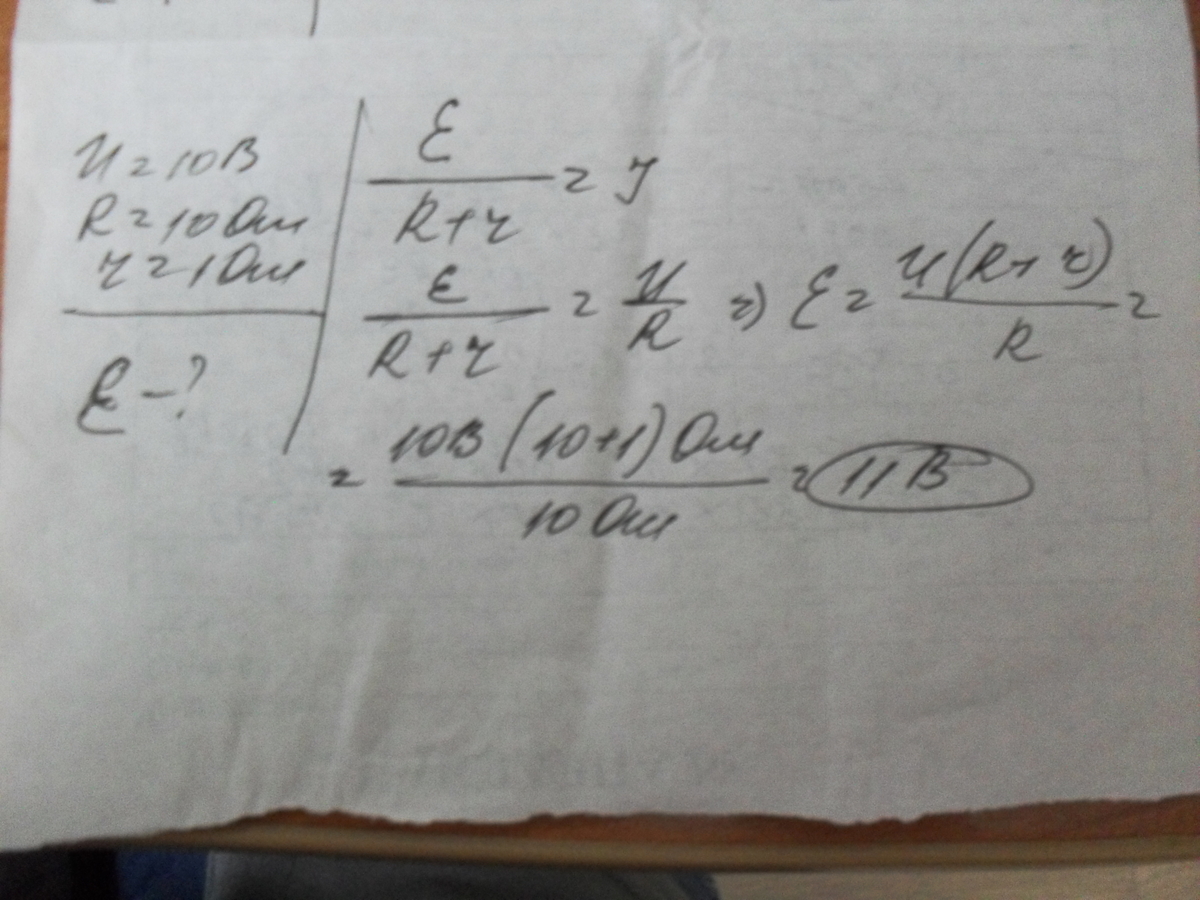 U = 10В
R = 10 Ом
r = 1 Ом
ℰ - ?
ℰ / (R + r) = J
ℰ / (R + r) = U / R => ℰ = U(R + r) / R =
= 10В (10+1) Ом / 10 Ом = 11 В